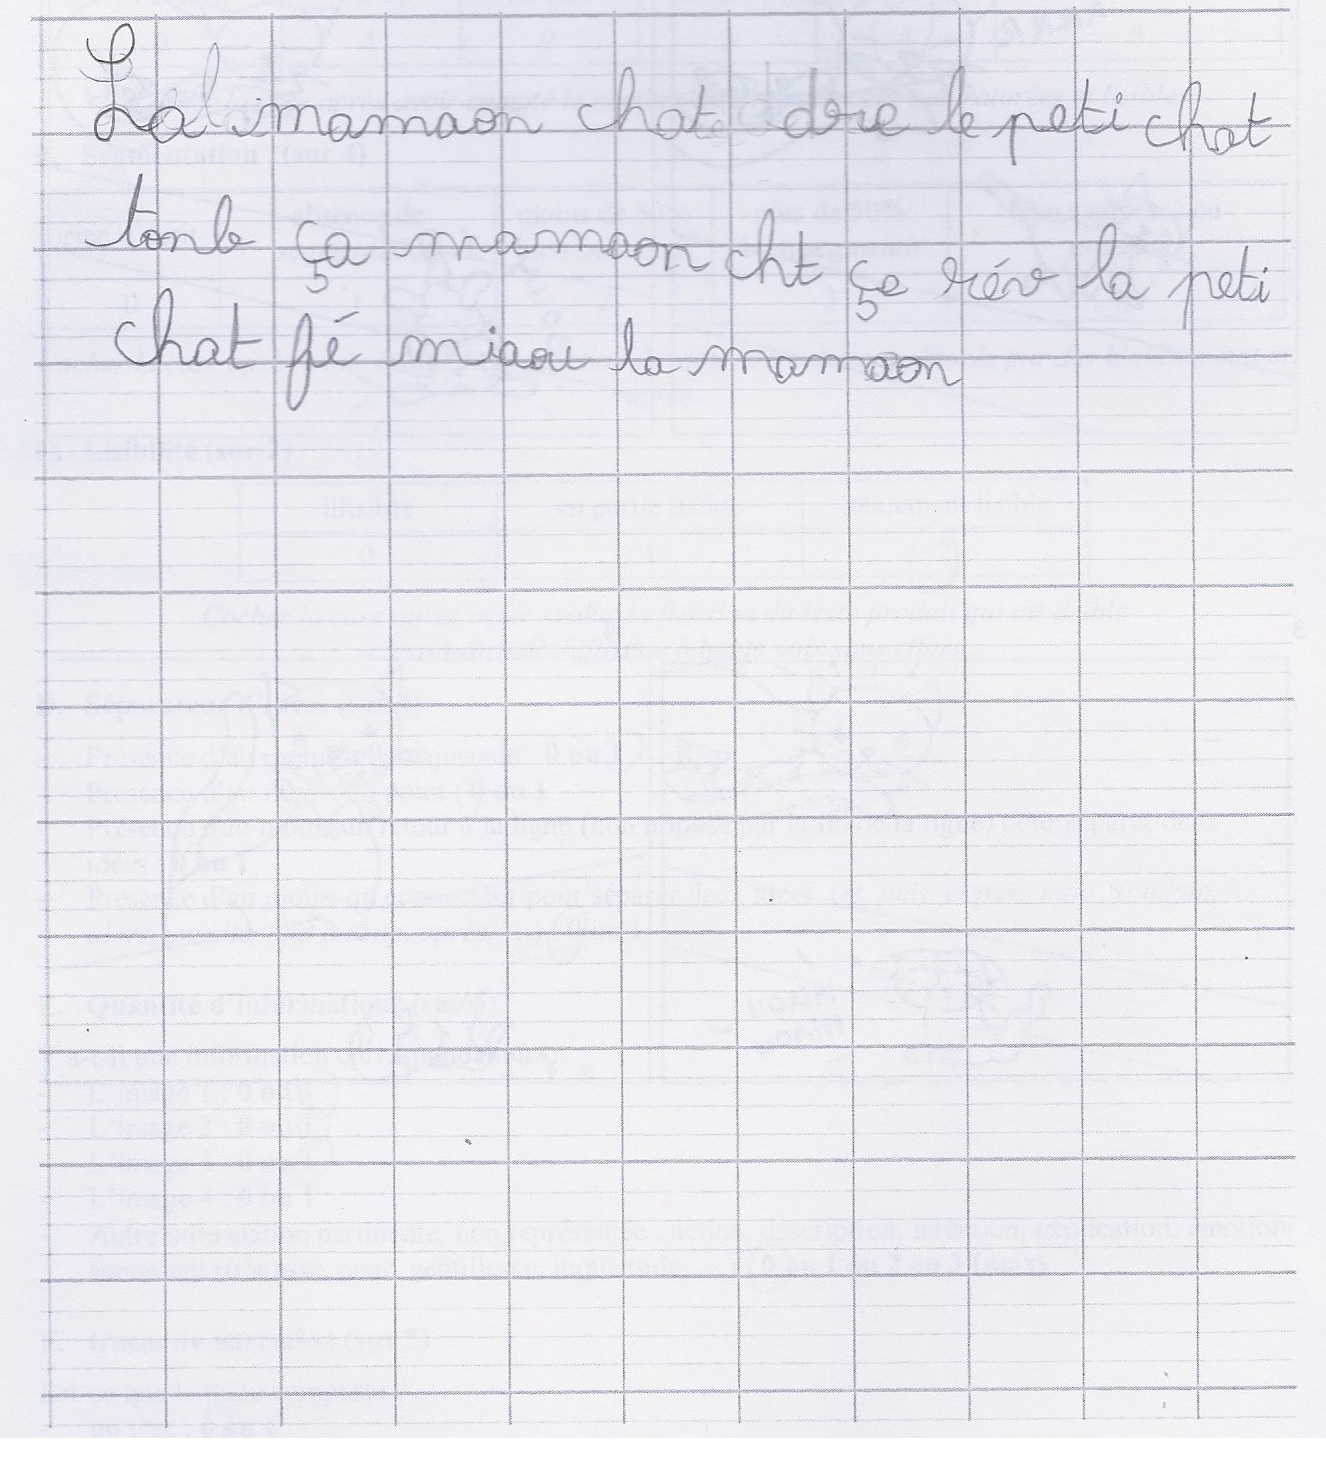 La mamaon chat dre le peti chat
tonb ça mamaon cht çe rév la peti
chat fé miaou la mamaon